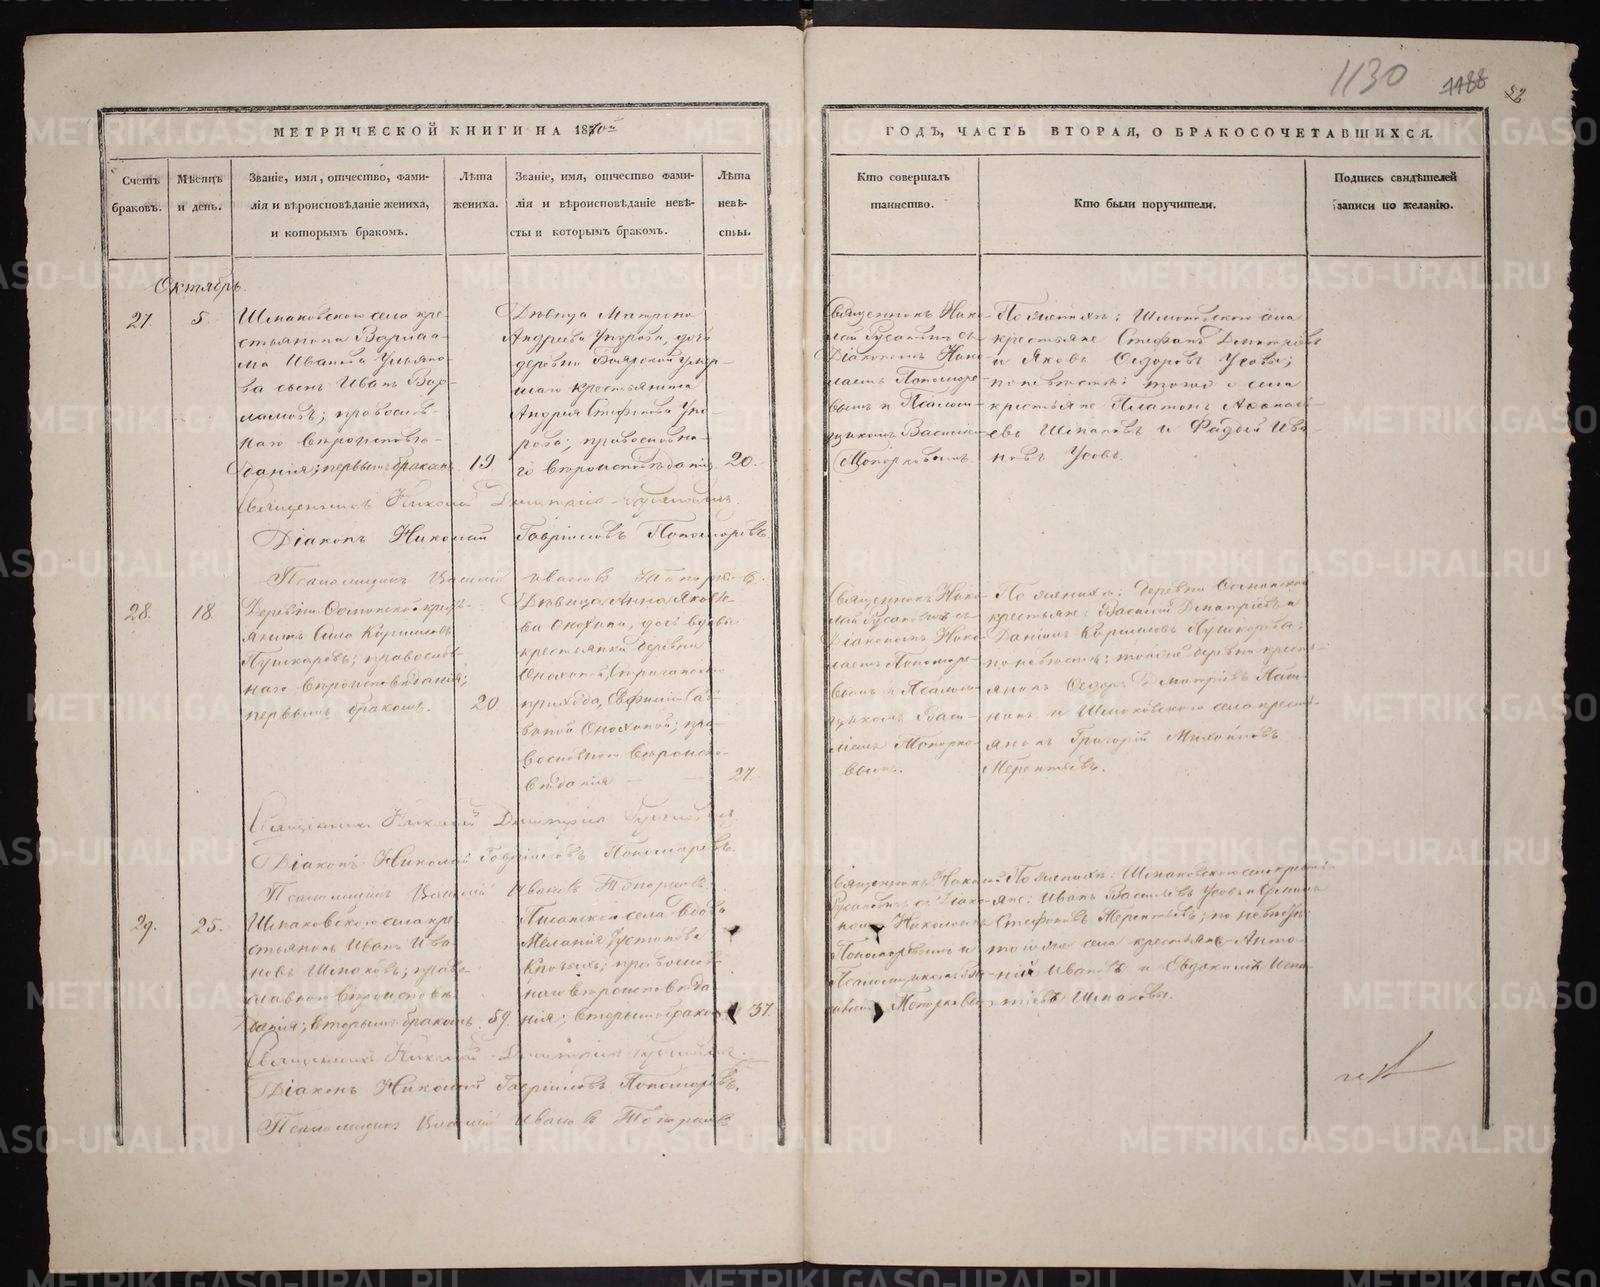 1130
1188
52
МЕТРИЧЕСКОЙ КНИГИ НА 1870й
ГОДЪ, ЧАСТЬ ВТОРАЯ, О БРАКОСОЧЕТАВШИХСЯ.
Счетъ браковъ.
Мѣсяцъ и день.
Званіе, имя, отчество, фами-
лія и вѣроисповѣданіе жениха,
и которымъ бракомъ.
Лѣта
жениха.
Званіе, имя, отчество фами-
лія и вѣроисповѣданіе невѣ-
сты и которымъ бракомъ.
Лѣта
невѣ-
сты.
Кто совершалъ
таинство.
Кто были поручители.
Подпись свидѣтелей
записи по желанію.
Октябрь
27.
5.
Шмаковскаго села кре-
стьянина
Ивана
ва сынъ Иванъ Вар-
ламовъ; православ-
наго вѣроисповѣ-
данія; первымъ бракомъ
19.
Дѣвица Матрона
Андреева дочь
деревни Боярской умер-
шаго крестьянина
Андрея Стефанова
православна-
го вѣроисповѣданія
20.
Священникъ Нико-
лай Русановъ съ
Діакономъ Нико-
лаемъ Пономаре-
вымъ и Псаломщ-
икомъ Василіемъ
Топорковымъ
По женихѣ: Шмаковскаго села
крестьяне Стефанъ Димитріевъ
и Яковъ Сидоровъ Усовы;
по невѣстѣ: того же села
крестьяне Платонъ
евъ Шмаковъ и Фадей Ива-
новъ Усовъ.
Священникъ Николай Димитріевъ Русановъ.
Діаконъ Николай Гавріиловъ Пономаревъ
Псаломщикъ Василій Ивановъ Топорковъ.
28.
18.
Деревни кресть-
янинъ
Пушкаревъ; православ-
наго вѣроисповѣданія;
первымъ бракомъ.
20
Дѣвица Анна Яковле-
ва Онохина, дочь вдовы
крестьянки деревни
Онохиной,
прихода, Евфиміи Са-
виной Онохиной; пра-
вославнаго вѣроиспо-
вѣданія
21.
Священникъ Нико-
лай Русановъ съ
Діакономъ Нико-
лаемъ Пономаре-
вымъ и Псалом-
щикомъ Васи-
ліемъ Топорко-
вымъ.
По женихѣ: деревни
крестьяне: Василій Димитріевъ и
Даніилъ Пушкаревы;
по невѣстѣ: той же деревни кресть-
янинъ Сидоръ Димитріевъ
и Шмаковскаго села кресть-
янинъ Григорій Михайловъ
Терентьевъ.
Священникъ Николай Димитріевъ Русановъ
Діаконъ Николай Гавріиловъ Пономаревъ.
Псаломщикъ Василій Ивановъ Топорковъ.
29.
25.
Шмаковскаго села кре-
стьянинъ Иванъ Ива-
новъ Шмаковъ; право-
славнаго вѣроисповѣ-
данія; вторымъ бракомъ.
59.
села вдова
Меланія Іустинова
православ-
наго вѣроисповѣда-
нія; вторымъ бракомъ
37.
Священникъ Николай
Русановъ съ Діако-
номъ Николаемъ
Пономаревымъ и
Псаломщикомъ Ва-
силіемъ Топорковымъ
По женихѣ: Шмаковскаго села крестья-
яне: Иванъ Васильевъ Усовъ и
Стефановъ Терентьевъ; по невѣстѣ:
того же села крестьяне Анто-
ній Ивановъ и Евдокимъ Игна-
тіевъ Шмаковы.
Священникъ Николай Димитріевъ Русановъ.
Діаконъ Николай Гавріиловъ Пономаревъ.
Псаломщикъ Василій Ивановъ Топорковъ
METRIKI.GASO-URAL.RU